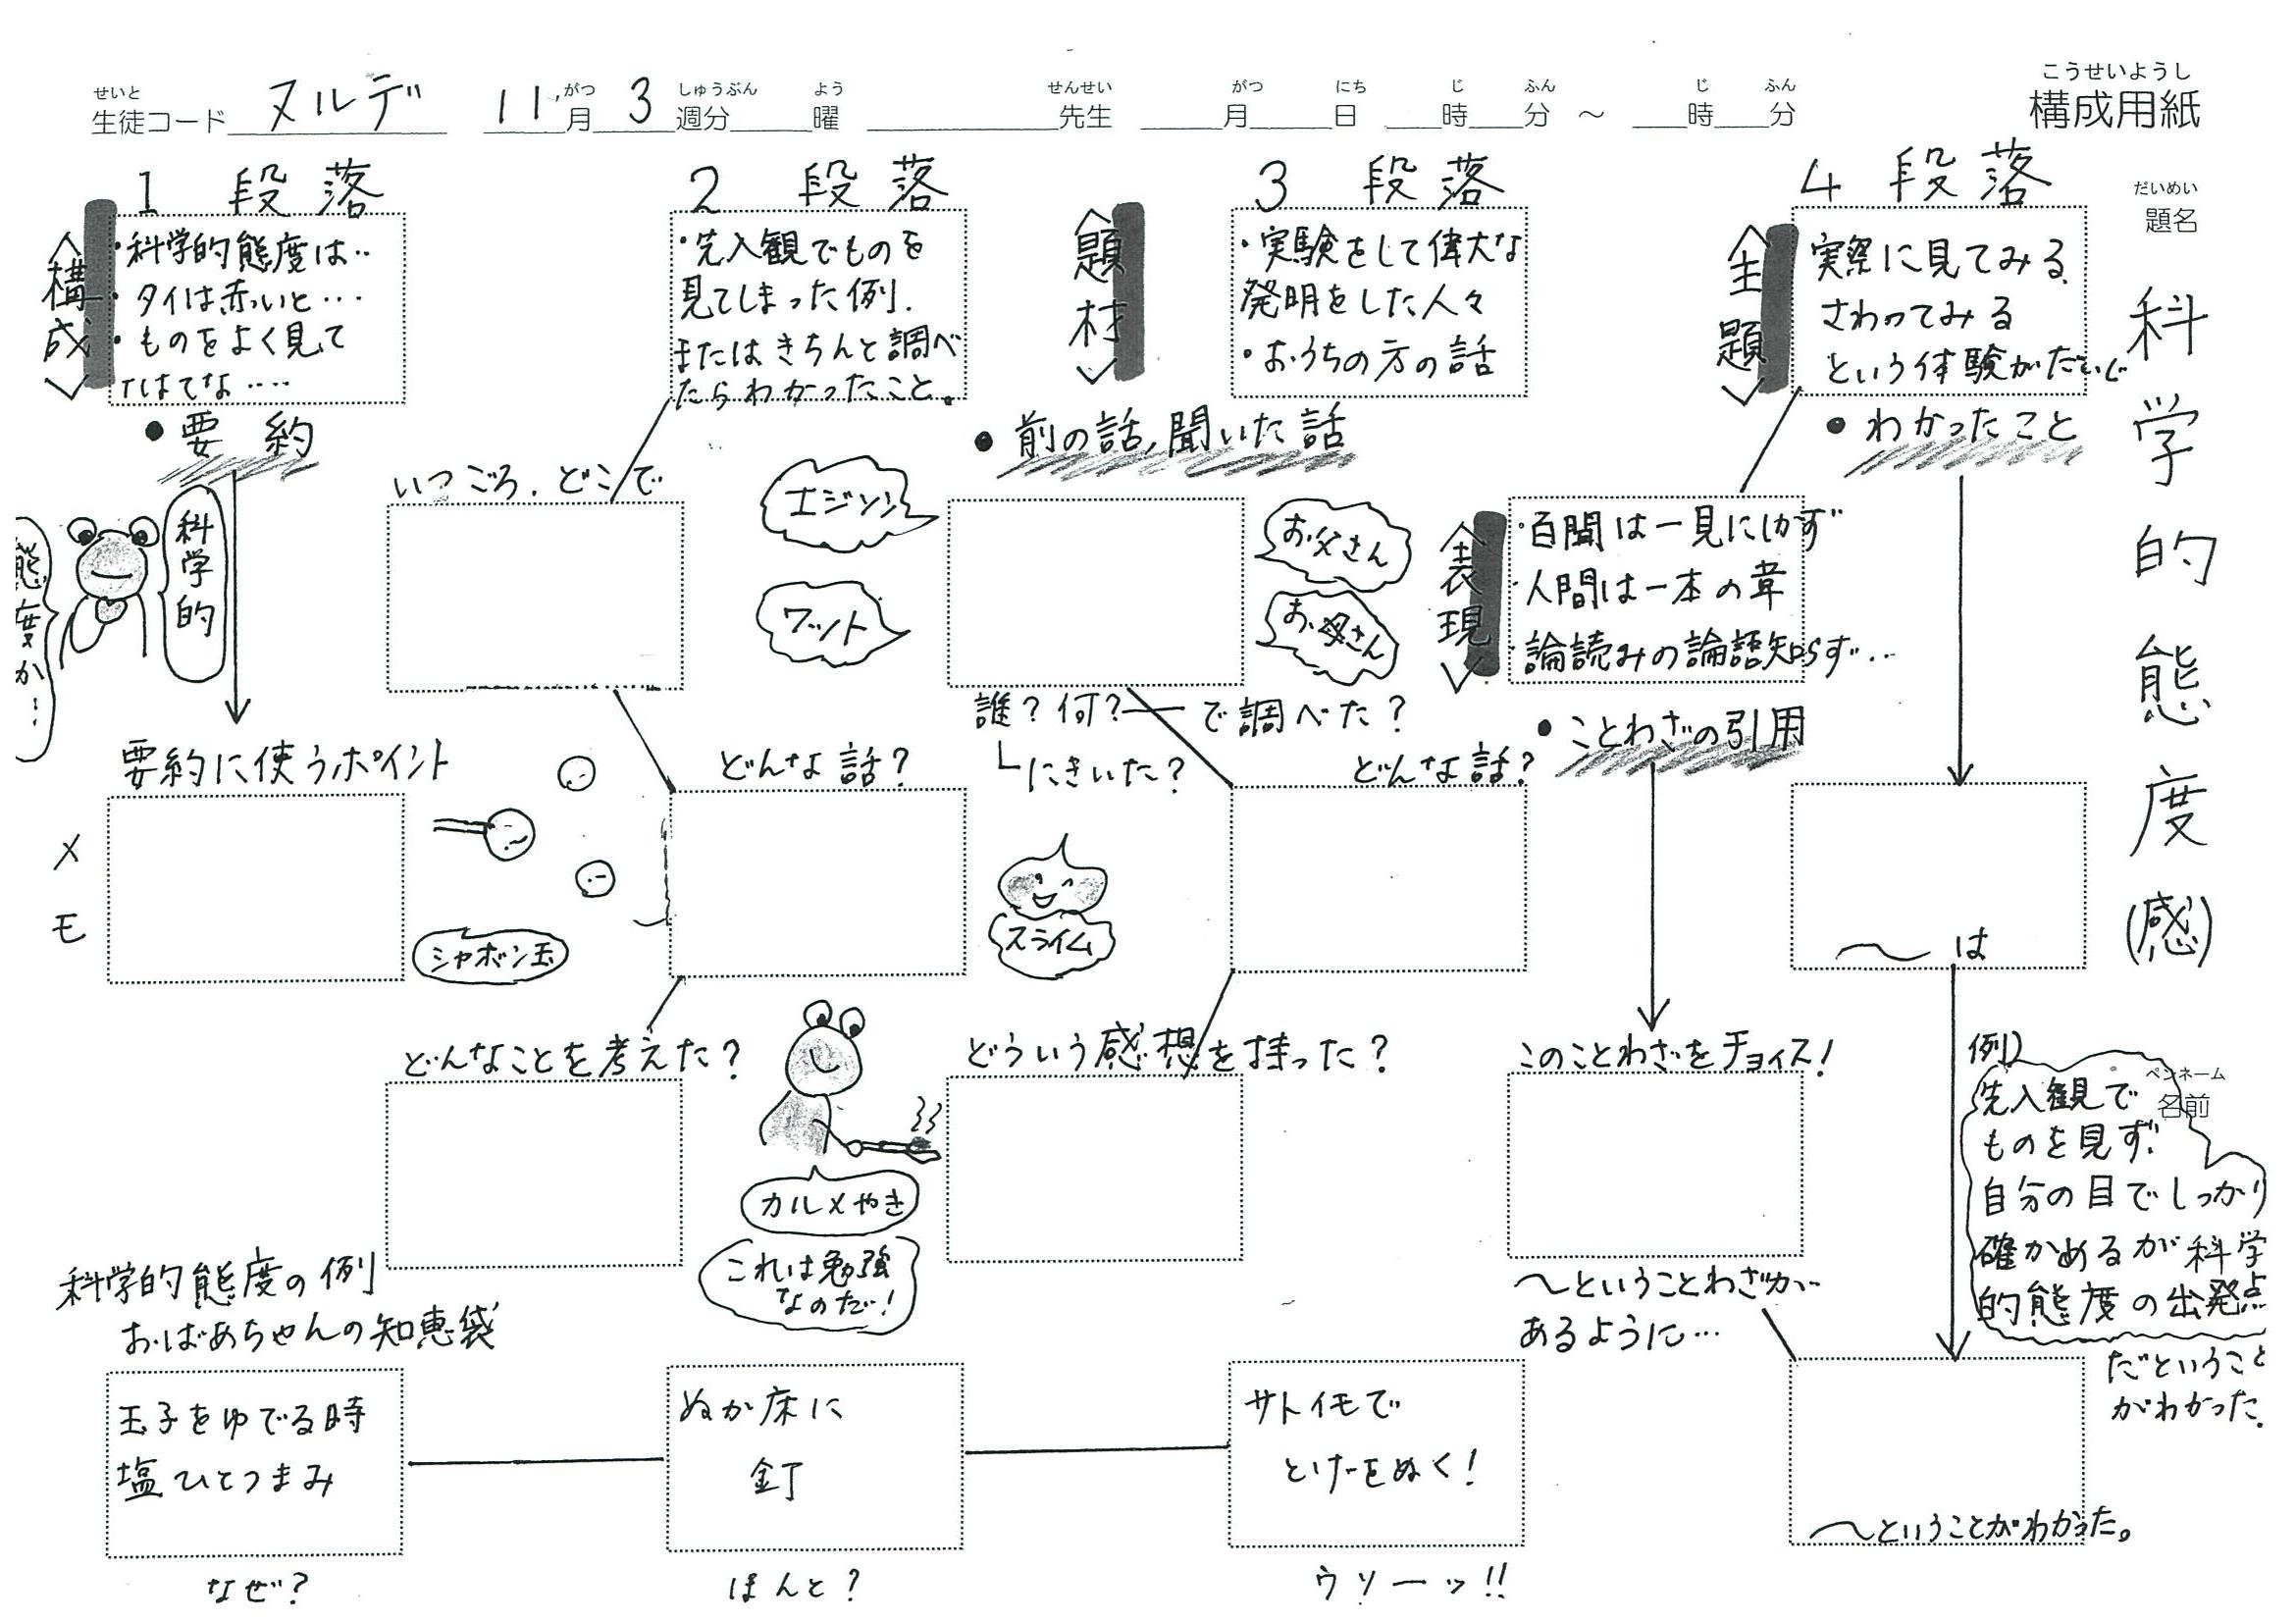 こうせいようし
構成用紙
せいと
生徒コード ヌルデ 11月 3週分 曜 先生 月 日 時 分 ～ 時 分
がつ しゅうぶん よう せんせい がつ にち じ ふん じ ふん
だいめい
題名
科学的態度(感)
ペンネーム
名前
1 段落
〈構成〉
・科学的態度は‥
・タイは赤いと…
・ものをよく見て
はてな‥‥
・要約
科学的
態度か…
要約に使うポイント
メモ
シャボン玉
2 段落
・先入観でものを
見てしまった例.
またはきちんと調べ
たらわかったこと。
いつごろ、どこで
どんな話?
どんなことを考えた?
エジソン
ワット
スライム
カルメやき
これは勉強
なのだ!
〈題材〉
3 段落
・実験をして偉大な
発明をした人々
・おうちの方の話
・前の話、聞いた話
お父さん
お母さん
誰?何?
で調べた?
にきいた?
どんな話?
どういう感想を持った?
〈主題〉
4 段落
実際に見てみる
さわってみる
という体験がだいじ
・わかったこと
〈表現〉
・百聞は一見にしかず
・人間は一本の葦
・論読みの論語知らず‥
・ことわざの引用
このことわざをチョイス!
〜ということわざが
あるように…
〜は
例)
先入観で
ものを見ず
自分の目でしっかり
確かめるが科学
的態度の出発点
だということ
がわかった.
〜ということがわかった。
科学的態度の例
おばあちゃんの知恵袋
玉子をゆでる時
塩ひとつまみ
なぜ?
ぬか床に
釘
ほんと?
サトイモで
とげをぬく!
ウソーッ!!